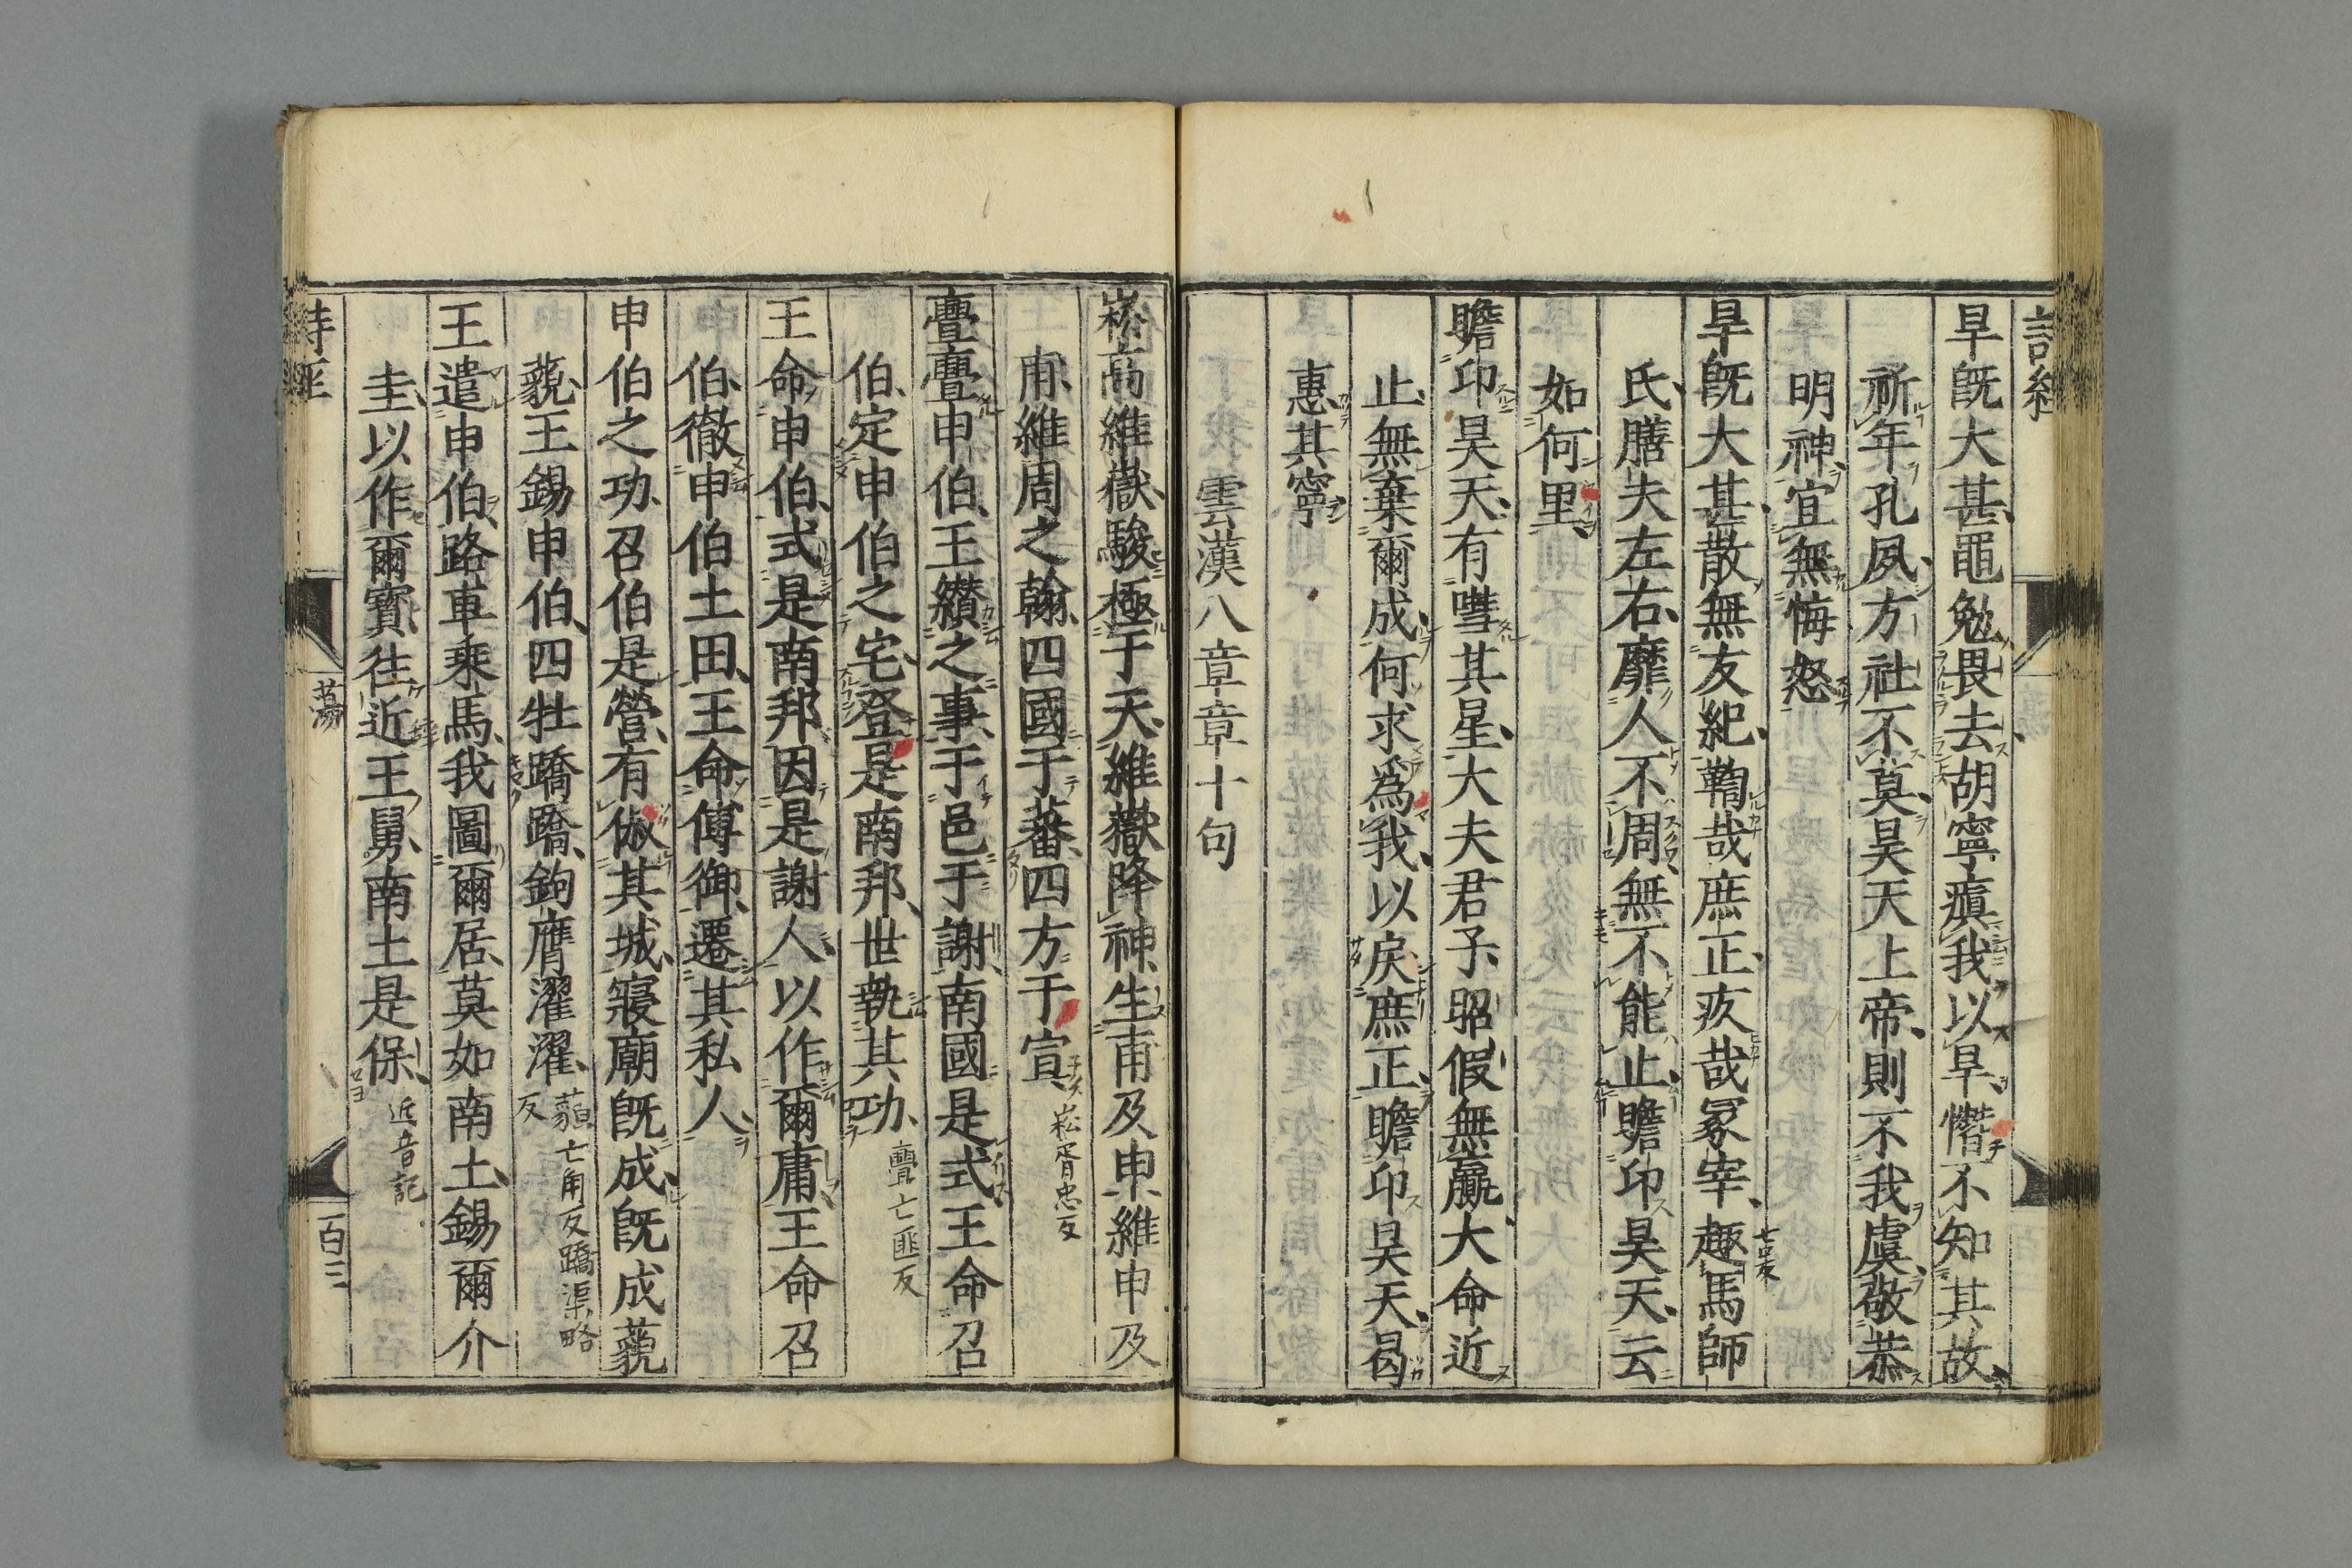 詩經
旱旣大甚黽勉畏去胡寧瘨我以旱憯不知其故
祈年孔夙方社不莫昊天上帝則不我虞敬恭
明神宜無悔怒
旱旣大甚散無友紀鞫哉庶正疚哉冢宰趣馬師
氏膳夫左右靡人不周無不能止瞻卬昊天云
如何里
瞻卬昊天有嘒其星大夫君子昭假無贏大命近
止無棄爾成何求爲我以戾庶正瞻卬昊天曷
惠其寧
雲漢八章章十句
崧高維嶽駿極于天維嶽降神生甫及申維申及
甫維周之翰四國于蕃四方于宣崧胥忠反
亹亹申伯王纘之事于邑于謝南國是式王命召
伯定申伯之宅登是南邦世執其功亹亡匪反
王命申伯式是南邦因是謝人以作爾庸王命召
伯徹申伯土田王命傅御遷其私人
申伯之功召伯是營有俶其城寢廟旣成旣成藐
藐王錫申伯四牡蹻蹻鉤膺濯濯藐亡角反蹻渠略反
王遣申伯路車乘馬我圖爾居莫如南土錫爾介
圭以作爾寶往近王舅南土是保近音記
詩經
蕩
百三